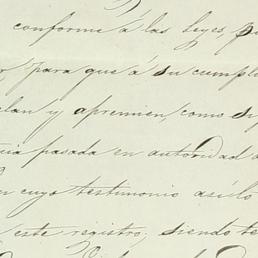 conforme á las leyes,
para que á su cumpli
y apremien, como
pasada en autoridad
cuyo testimonio así lo
este registro; siendo te